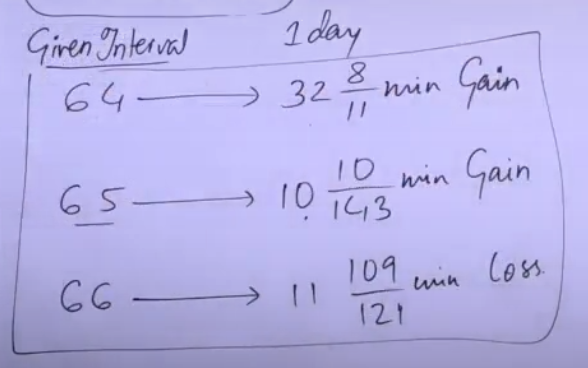 Given Interval 1 day
64 → 32 8/11 min Gain
65 → 10 10/143 min Gain
66 → 11 109/121 min Loss.